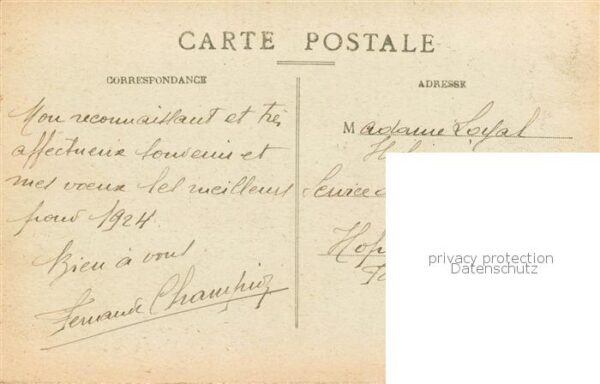 CARTE POSTALE
CORRESPONDANCE
Mon reconnaissant et très
affectueux souvenir et
mes vœux les meilleurs
pour 1924.
Bien à vous
Fernande Champion
ADRESSE
Madame Loyal
Service
privacy protection
Datenschutz